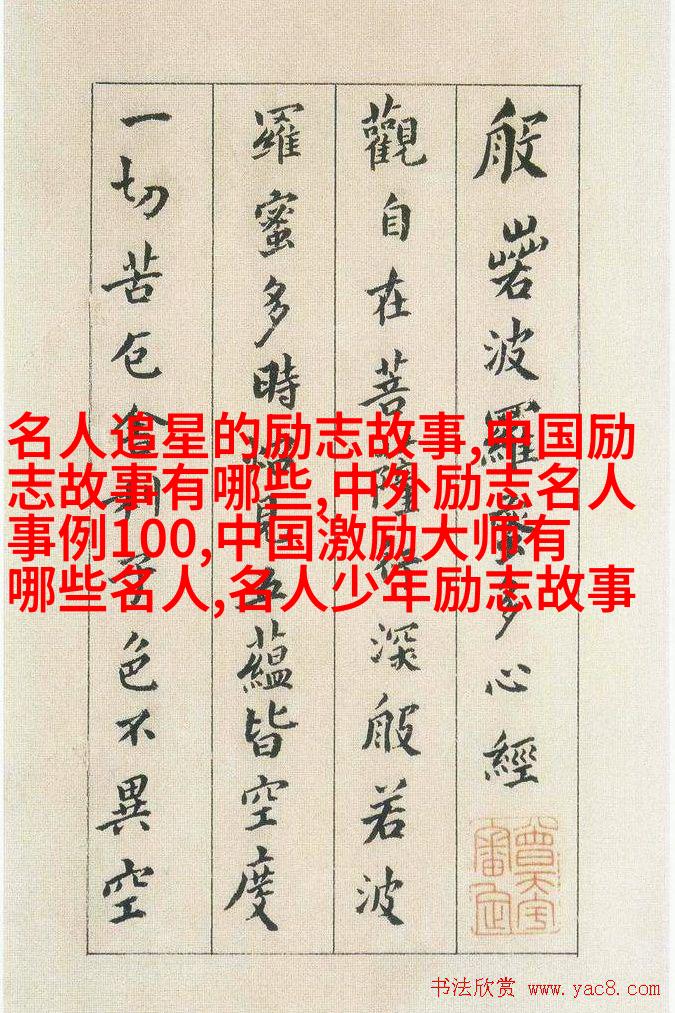 般若波羅蜜多心經
觀自在菩薩行深般若波
羅蜜多時照見五蘊皆空度
一切苦厄舍利子色不異空
名人追星的励志故事,中国励
志故事有哪些,中外励志名人
事例100,中国激励大师有
哪些名人,名人少年励志故事
书法欣赏 www.yac8.com